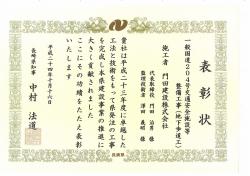 表彰状
一般国道204号交通安全施設等
整備工事(地下歩道工)
施工者 門田建設株式会社
代表取締役 門田 治男 様
監理技術者 澤田 義明 様
貴社は平成二十三年度に卓越した
工法と技術をもって県発注の工事
を完成し本県建設事業の推進に
大きく貢献されました
ここにその功績をたたえ表彰
いたします
平成二十四年十月十六日
長崎県知事 中村法道
長崎県